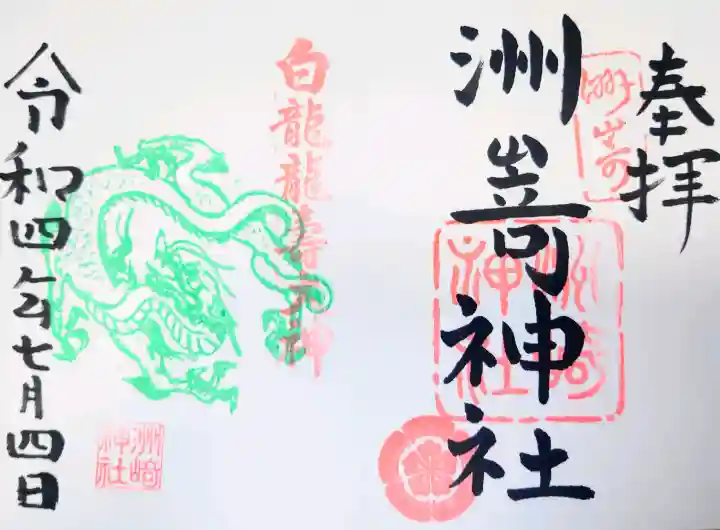 奉拝
洲嵜
洲嵜神社
洲崎神社
白龍龍壽大神
令和四年七月四日
洲崎神社